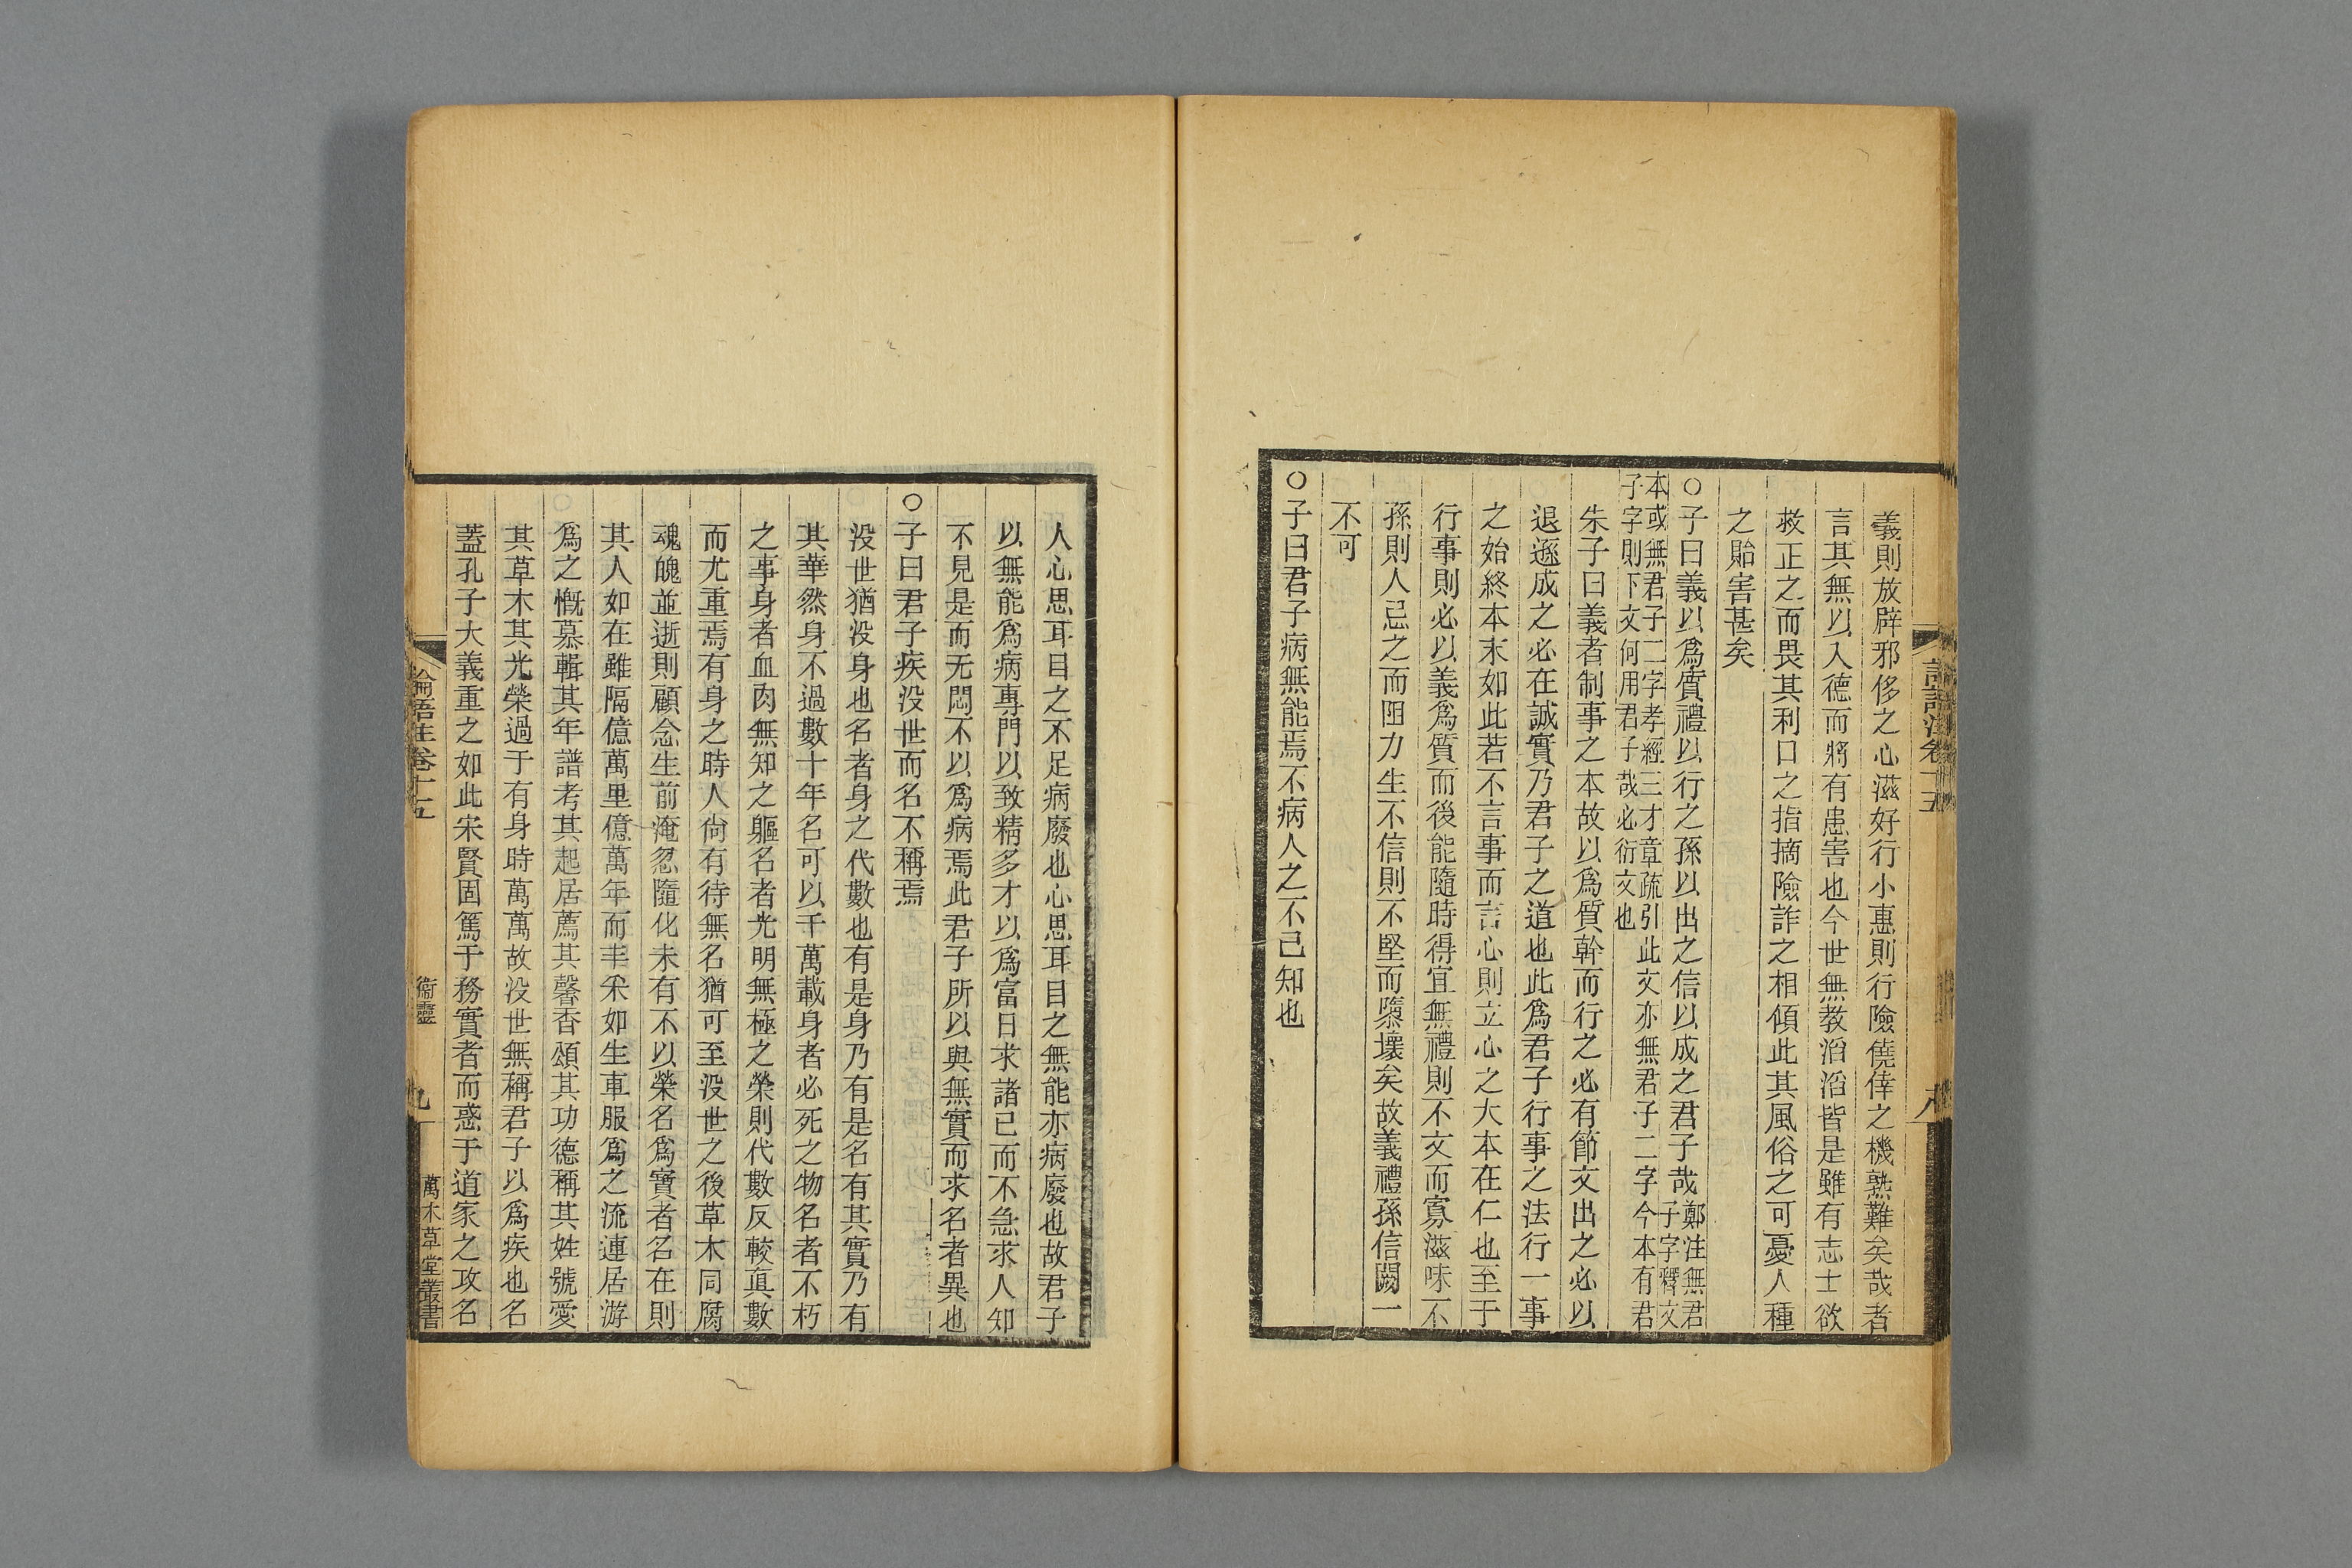 義則放辟邪侈之心滋好行小惠則行險僥倖之機熟難矣哉者
言其無以入德而將有患害也今世無教滔滔皆是雖有志士欲
救正之而畏其利口之指摘險詐之相傾此其風俗之可憂人種
之貽害甚矣
○子曰義以爲質禮以行之孫以出之信以成之君子哉鄭注無君
子字釋文
本或無君子二字孝經三才章疏引此文亦無君子二字今本有君
子字則下文何用君子哉必衍文也
朱子曰義者制事之本故以爲質幹而行之必有節文出之必以
退遜成之必在誠實乃君子之道也此爲君子行事之法行一事
之始終本末如此若不言事而言心則立心之大本在仁也至于
行事則必以義爲質而後能隨時得宜無禮則不文而寡滋味不
孫則人忌之而阻力生不信則不堅而隳壞矣故義禮孫信闕一
不可
○子曰君子病無能焉不病人之不己知也
論語注卷十五
八
人心思耳目之不足病廢也心思耳目之無能亦病廢也故君子
以無能爲病專門以致精多才以爲富日求諸己而不急求人知
不見是而无悶不以爲病焉此君子所以與無實而求名者異也
○子曰君子疾没世而名不稱焉
没世猶没身也名者身之代數也有是身乃有是名有其實乃有
其華然身不過數十年名可以千萬載身者必死之物名者不朽
之事身者血肉無知之軀名者光明無極之榮則代數反較眞數
而尤重焉有身之時人尙有待無名猶可至没世之後草木同腐
魂魄並逝則顧念生前淹忽隨化未有不以榮名爲寶者名在則
其人如在雖隔億萬里億萬年而丰采如生車服爲之流連居游
爲之慨慕輯其年譜考其起居薦其馨香頌其功德稱其姓號愛
其草木其光榮過于有身時萬萬故没世無稱君子以爲疾也名
蓋孔子大義重之如此宋賢固篤于務實者而惑于道家之攻名
論語注卷十五
衞靈
九
萬木草堂叢書